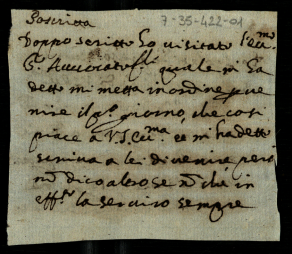 Poscritta
7-35-422-01
Doppo scritto ho visitato l'ecc.mo
S.r Avvocato quale mi ha
detto mi metta in ordine p ve
nire il p.o giorno, che cosi
piace a V.S. Ecc.ma e mi ha detto
scriva a lei di venire pero
nō dico altro se nō che in
eff.ti la serviro sempre